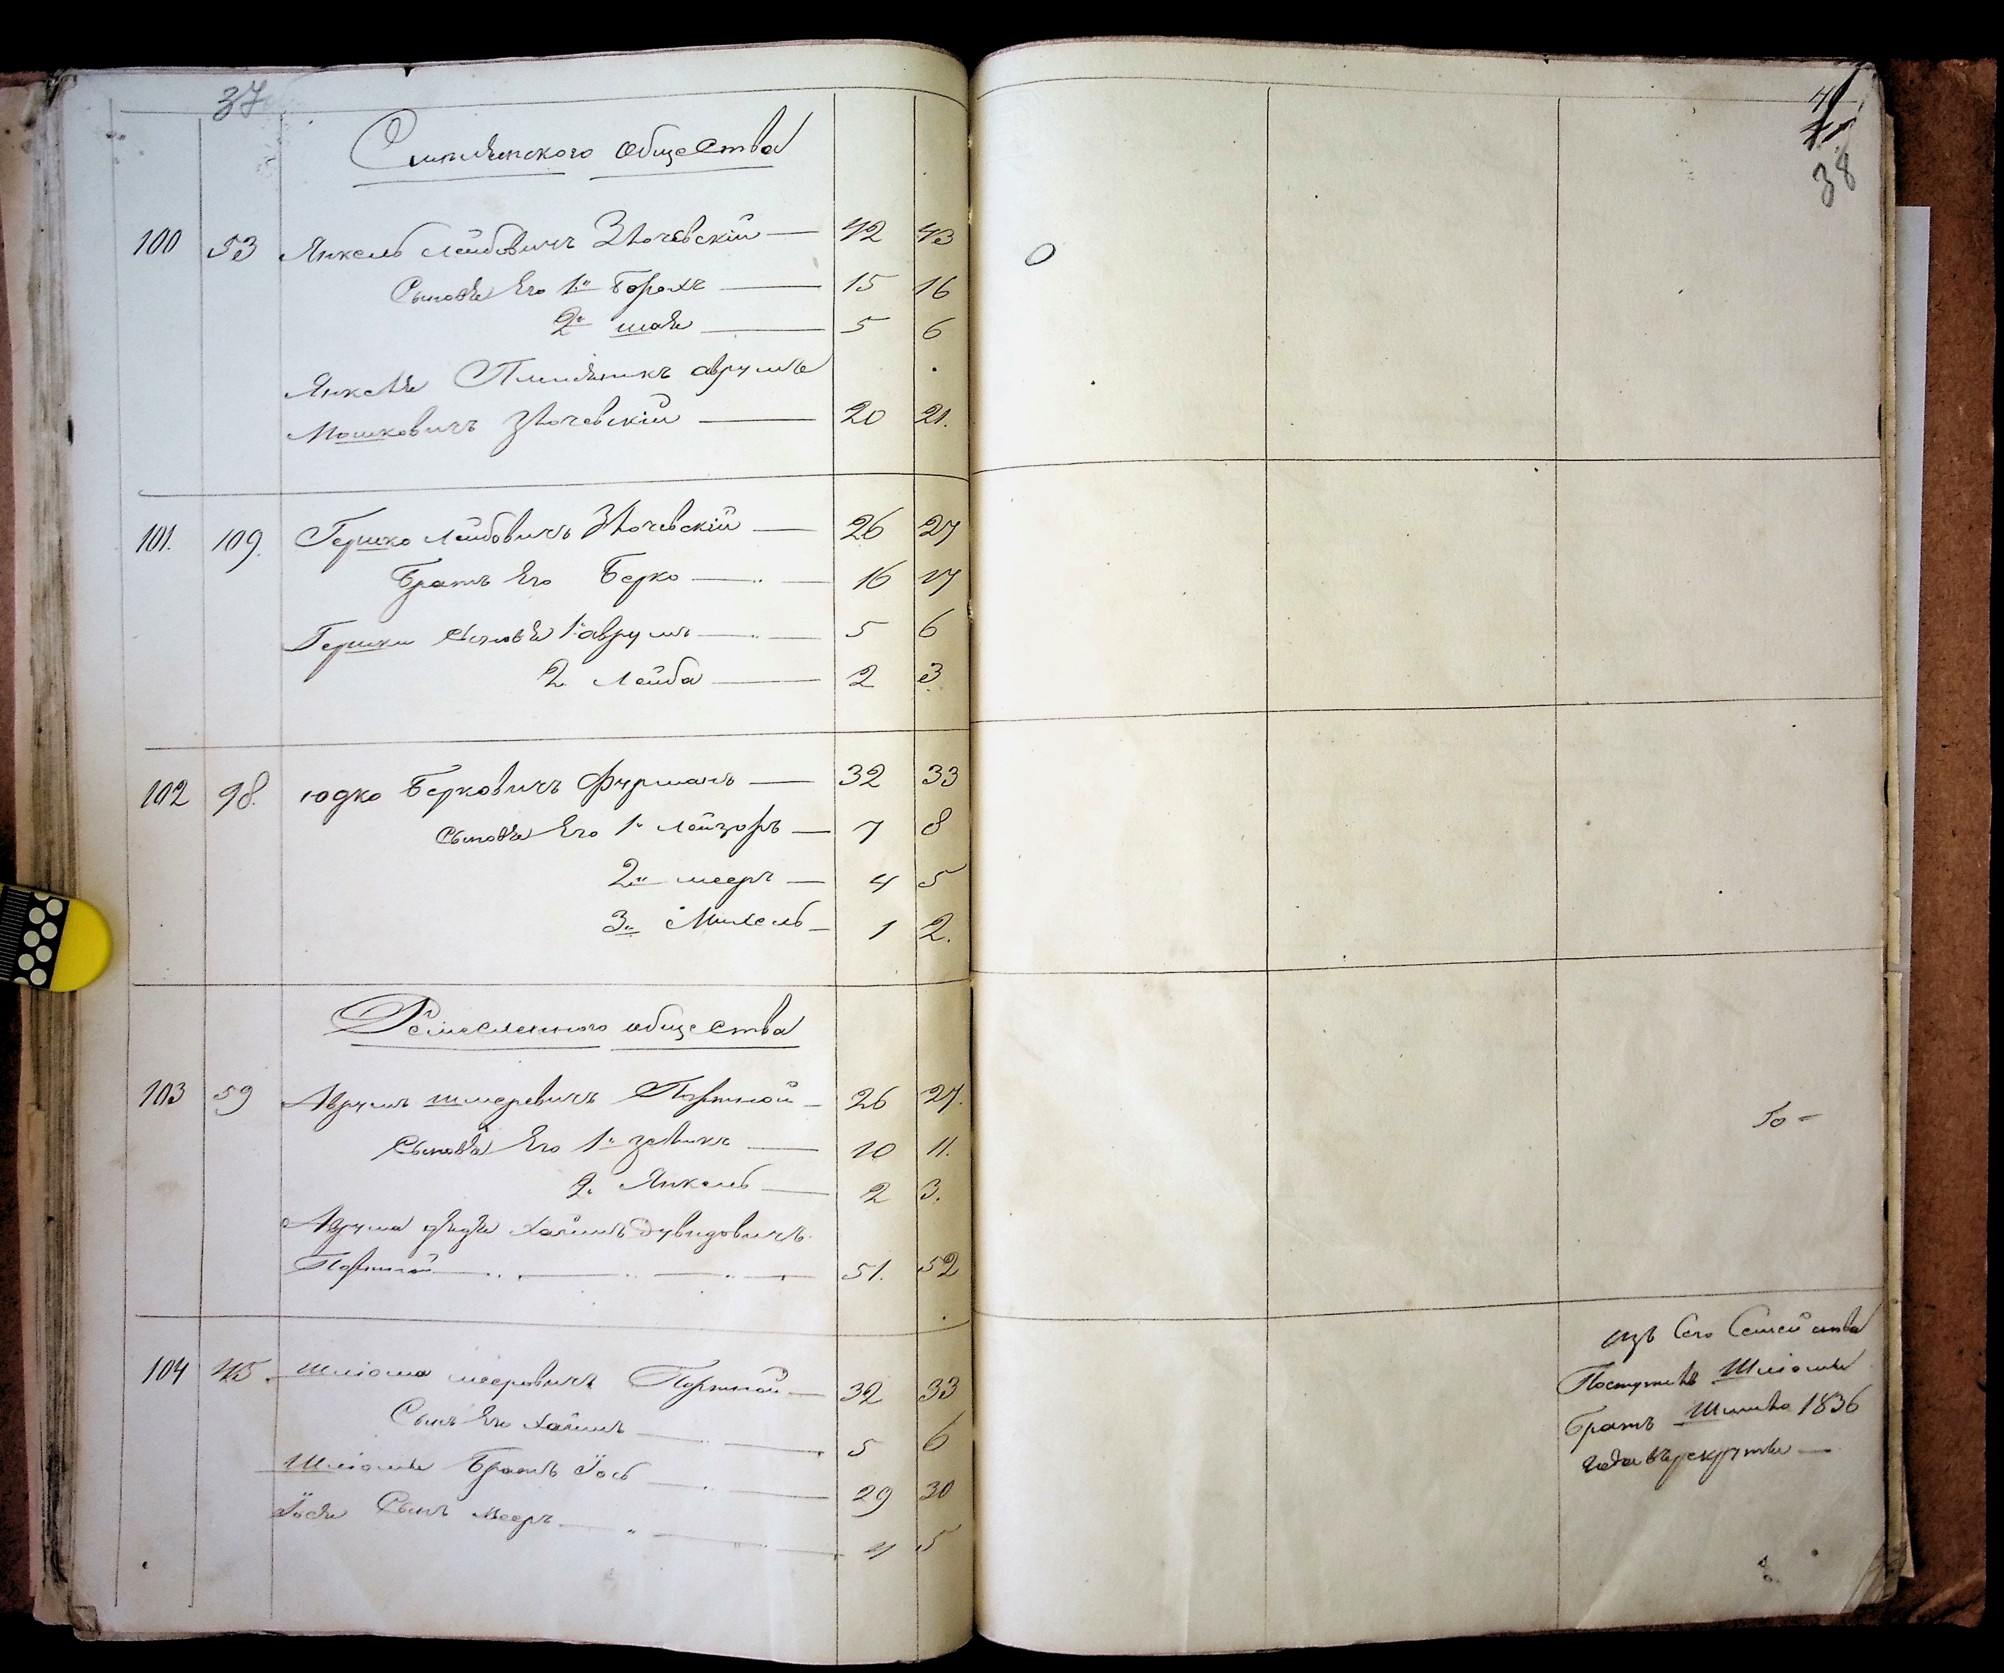 37
общества
100 53 Янкель Лейбовичъ Злочевскій — 42 43
Сыновья Его 1й Борохъ — 15 16
2й шая — 5 6
Янкеля Племянникъ аврумъ
Мошковичъ Злочевскій — 20 21.
101. 109. Гершко Лейбовичъ Злочевскій — 26 27
Братъ Его Берко — 16 17
Гершки Сыновья 1й аврумъ — 5 6
2. Лейба — 2 3
102 98. юдко Берковичъ Фурманъ — 32 33
Сыновья Его 1й Лейзоръ — 7 8
2й мееръ — 4 5
3й Михель — 1 2.
Ремесленного общества
103 59 Аврумъ шмеревичъ Портной — 26 27.
Сыновья Его 1й зельикъ — 10 11.
2. Янкель — 2 3.
Аврума дядя Хаимъ Дувидовичъ
Портной — 51. 52
104 45. шліома мееровичъ Портной — 32 33
Сынъ Его хаимъ — 5 6
Шліомы Братъ Іось — 29 30
Іося Сынъ мееръ — 4 5
38
изъ Сего Семейства
Поступилъ Шліомы
братъ 1836
года въ рекруты —